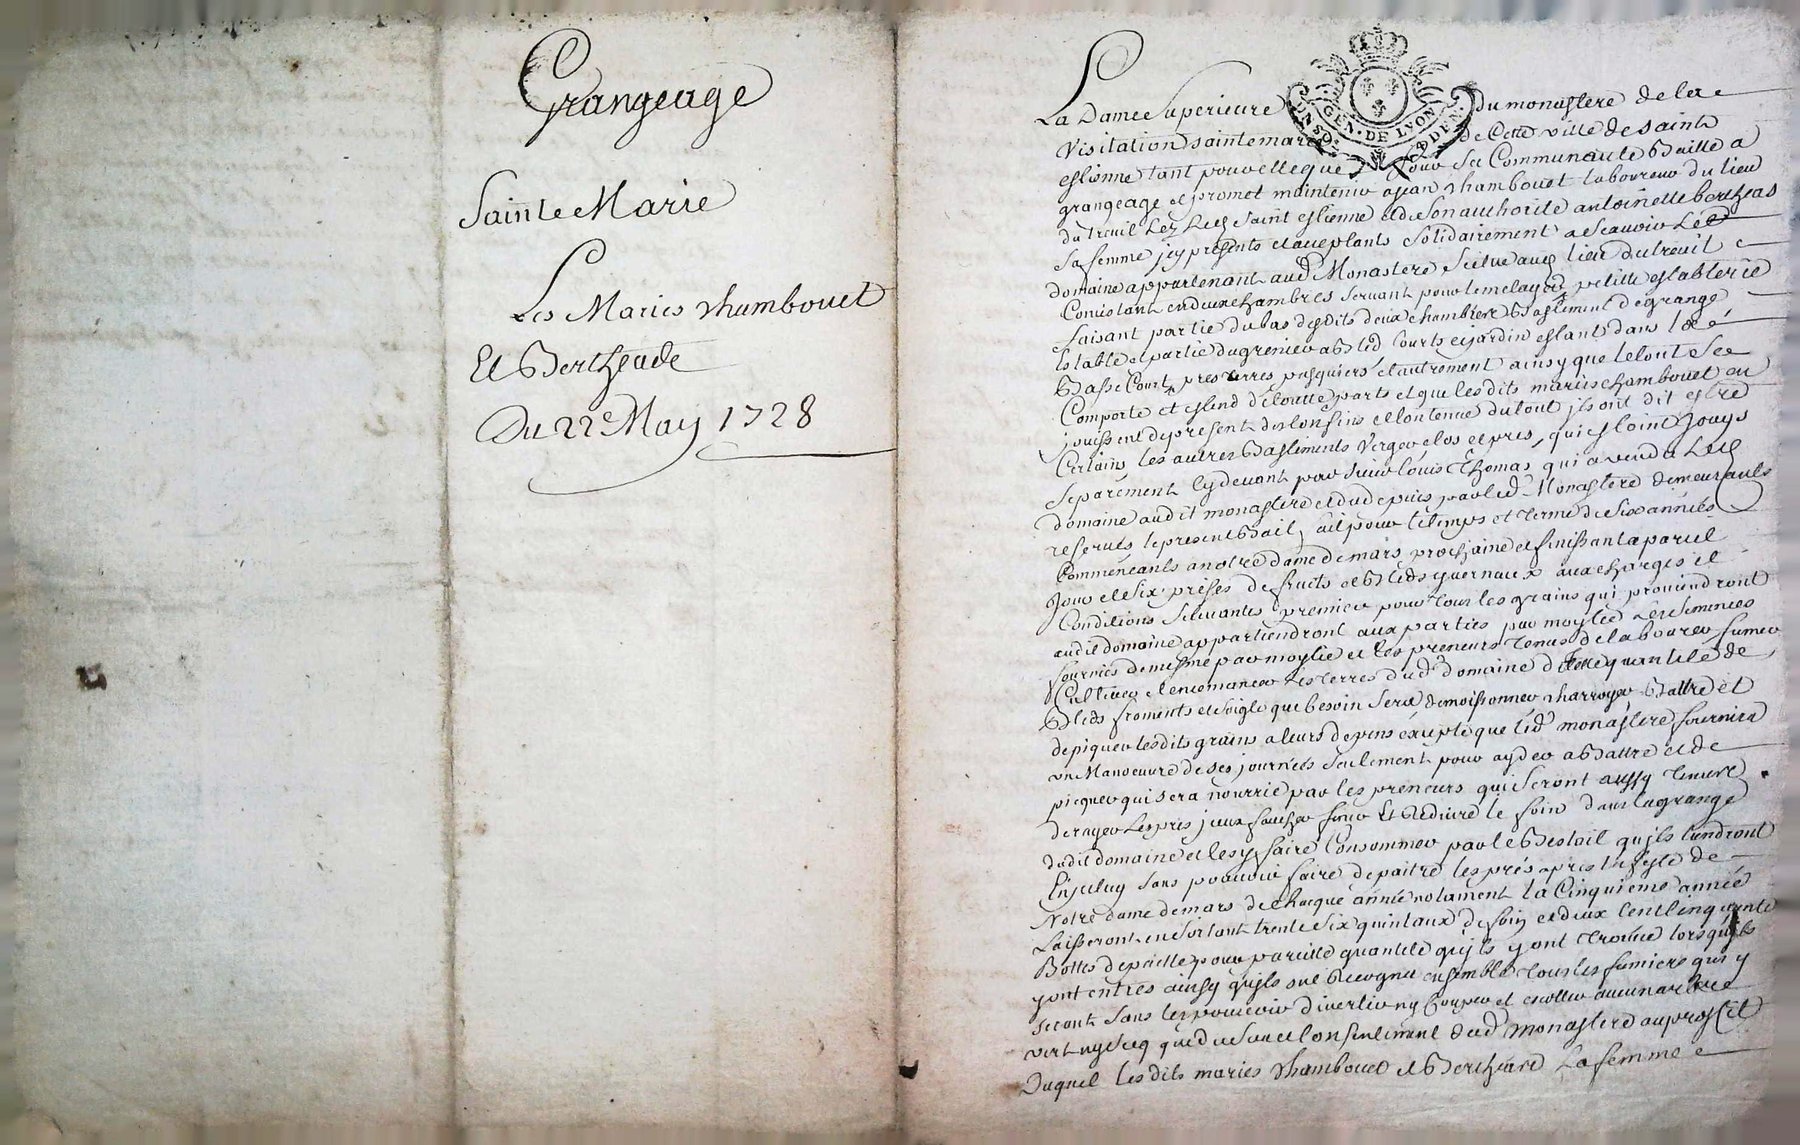 Grangeage
Sainte Marie
Les Maries Chambouet
Et Bertheade
Du 22e May 1728
GEN · DE LYON
La Dame Superieure du monastere de la
Visitation sainte marie de Cette ville de saint
estienne tant pour elle que pour sa Communauté Baille a
grangeage et promet maintenir a Jean Chambouet laboureur du lieu
du treuil Lez Led saint estienne et de son authorité antoinette bertheas
sa femme jcy presents et acceptants solidairement a scavoir Led
domaine appartenant aud Monastere scitué aud lieu du treuil
Consistant en deux chambres servant pour le melayer petitte establerie
faisant partie du bas desdits deux chambres Bastiment de grange
Estable et partie du grenier a Bled Courts et jardin estant dans la
Basse Court, pres terres pasquiers et autrement ainsy que le tout se
Comporte et estend de toutte parts et que lesdits maries chambouet en
jouissent de present des confins et contenue du tout jls ont dit estre
Certains les autres Bastiments Verger clos et pres, qui estoint Jouys
separement Cy devant par sieur Louis Thomas qui a vendu Led
domaine audit monastere et du depuis par led Monastere demeurants
reservés le present Bail, fait pour le temps et terme de Six années
Commencants a notre dame de mars prochaine et finissant a pareil
Jour et six prises de fruits et Bleds yvernaux aux charges et
Conditions suivantes premier pour tous les grains qui proviendront
audit domaine appartiendront aux parties par moytié Les semences
fournies de mesme par moytie et les preneurs tenus de labourer fumer
Cultiver et ensemancer les terres dud domaine de telle quantité de
Bleds froments et seigle que besoin sera de moissonner charroyer Battre et
depiquer lesdits grains a leurs depens excepté que led monastere fournira
un Manoeuvre de ses journées seulement pour ayder a Battre et de
picquer qui sera nourrie par les preneurs qui seront aussy tenus
de rayer Les prés jceux faucher fener Et Reduire le foin dans la grange
dudit domaine et les y faire Consommer par le Bestail qu'jls tiendront
En jceluy sans pouvoir faire depaitre les prés apres la feste de
Notre dame de mars de chaque année notament la Cinquieme année
Laisseront en sortant trente six quintaux de foin et deux Cent Cinquante
Bottes de paille pour pareille quantité qu'jls y ont trouvée lorsqu'jls
y ont entrés ainsy qu'jls ont Recognu ensemble tous les fumiers qui y
seront sans les pouvoir divertir ny Couper et enotter aucun arbre
vert ny secq que du sceu et Consentement dud monastere au proffit
Duquel les dits maries Chambouet et Bertheard La femme